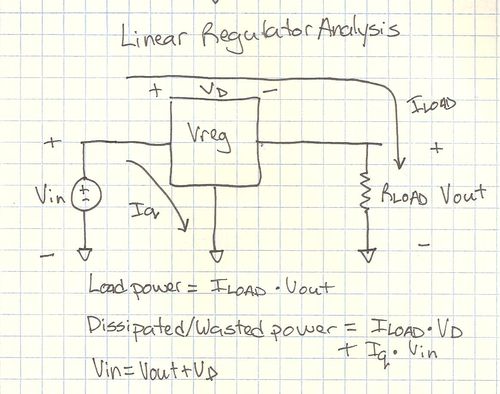 Linear Regulator Analysis
+ VD -
ILOAD
+ Vreg +
Vin + - Iq RLOAD Vout
- -
Load power = ILOAD · Vout
Dissipated/Wasted power = ILOAD · VD
+ Iq · Vin
Vin = Vout + VD